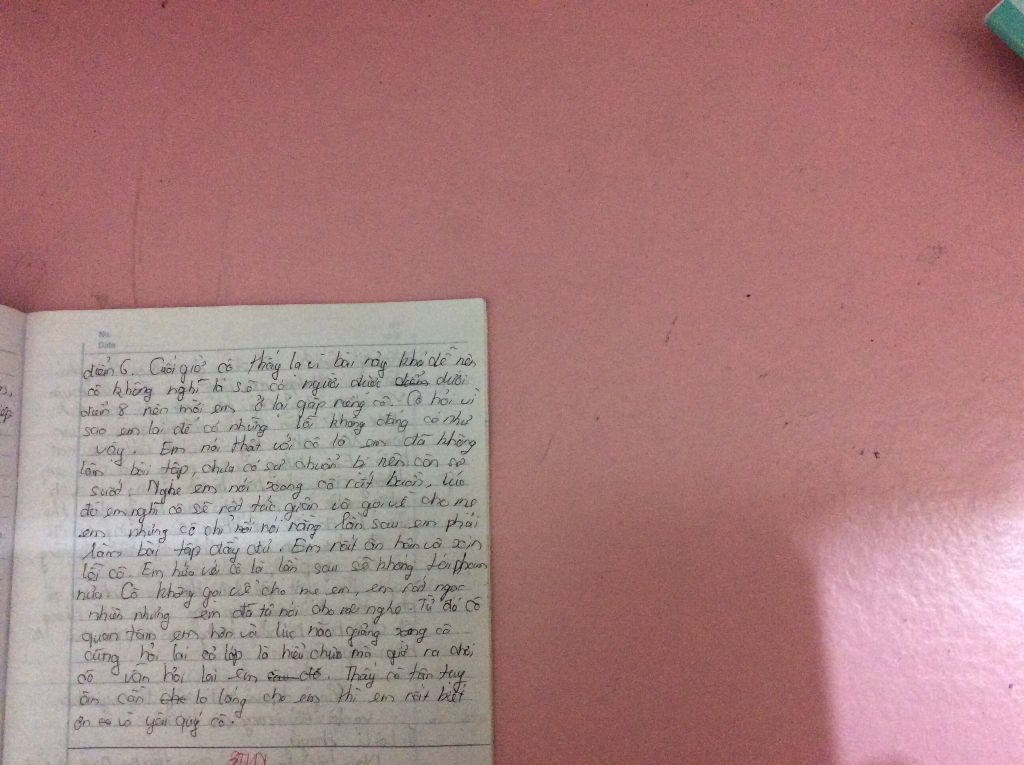 No.
Date
điểm 6. Cuối giờ cô thấy lạ vì bài này khá dễ nên
cô không nghĩ là sẽ có người được dưới
điểm 8 nên mời em ở lại gặp riêng cô. Cô hỏi vì
sao em lại để có những lỗi không đáng có như
vậy. Em nói thật với cô là em đã không
làm bài tập, chưa có sự chuẩn bị nên còn sơ
suất. Nghe em nói xong cô rất buồn, lúc
đó em nghĩ cô sẽ rất tức giận và gọi về cho mẹ
em nhưng cô chỉ nói rằng lần sau em phải
làm bài tập đầy đủ. Em rất ân hận và xin
lỗi cô. Em hứa với cô là lần sau sẽ không tái phạm
nữa Cô không gọi về cho mẹ em, em rất ngạc
nhiên nhưng em đã tự nói cho mẹ nghe. Từ đó cô
quan tâm em hơn và lúc nào giảng xong cô
cũng hỏi lại cả lớp là hiểu chưa mà giờ ra chơi
cô vẫn hỏi lại em. Thấy cô tận tụy
ân cần lo lắng cho em thì em rất biết
ơn và yêu quý cô.